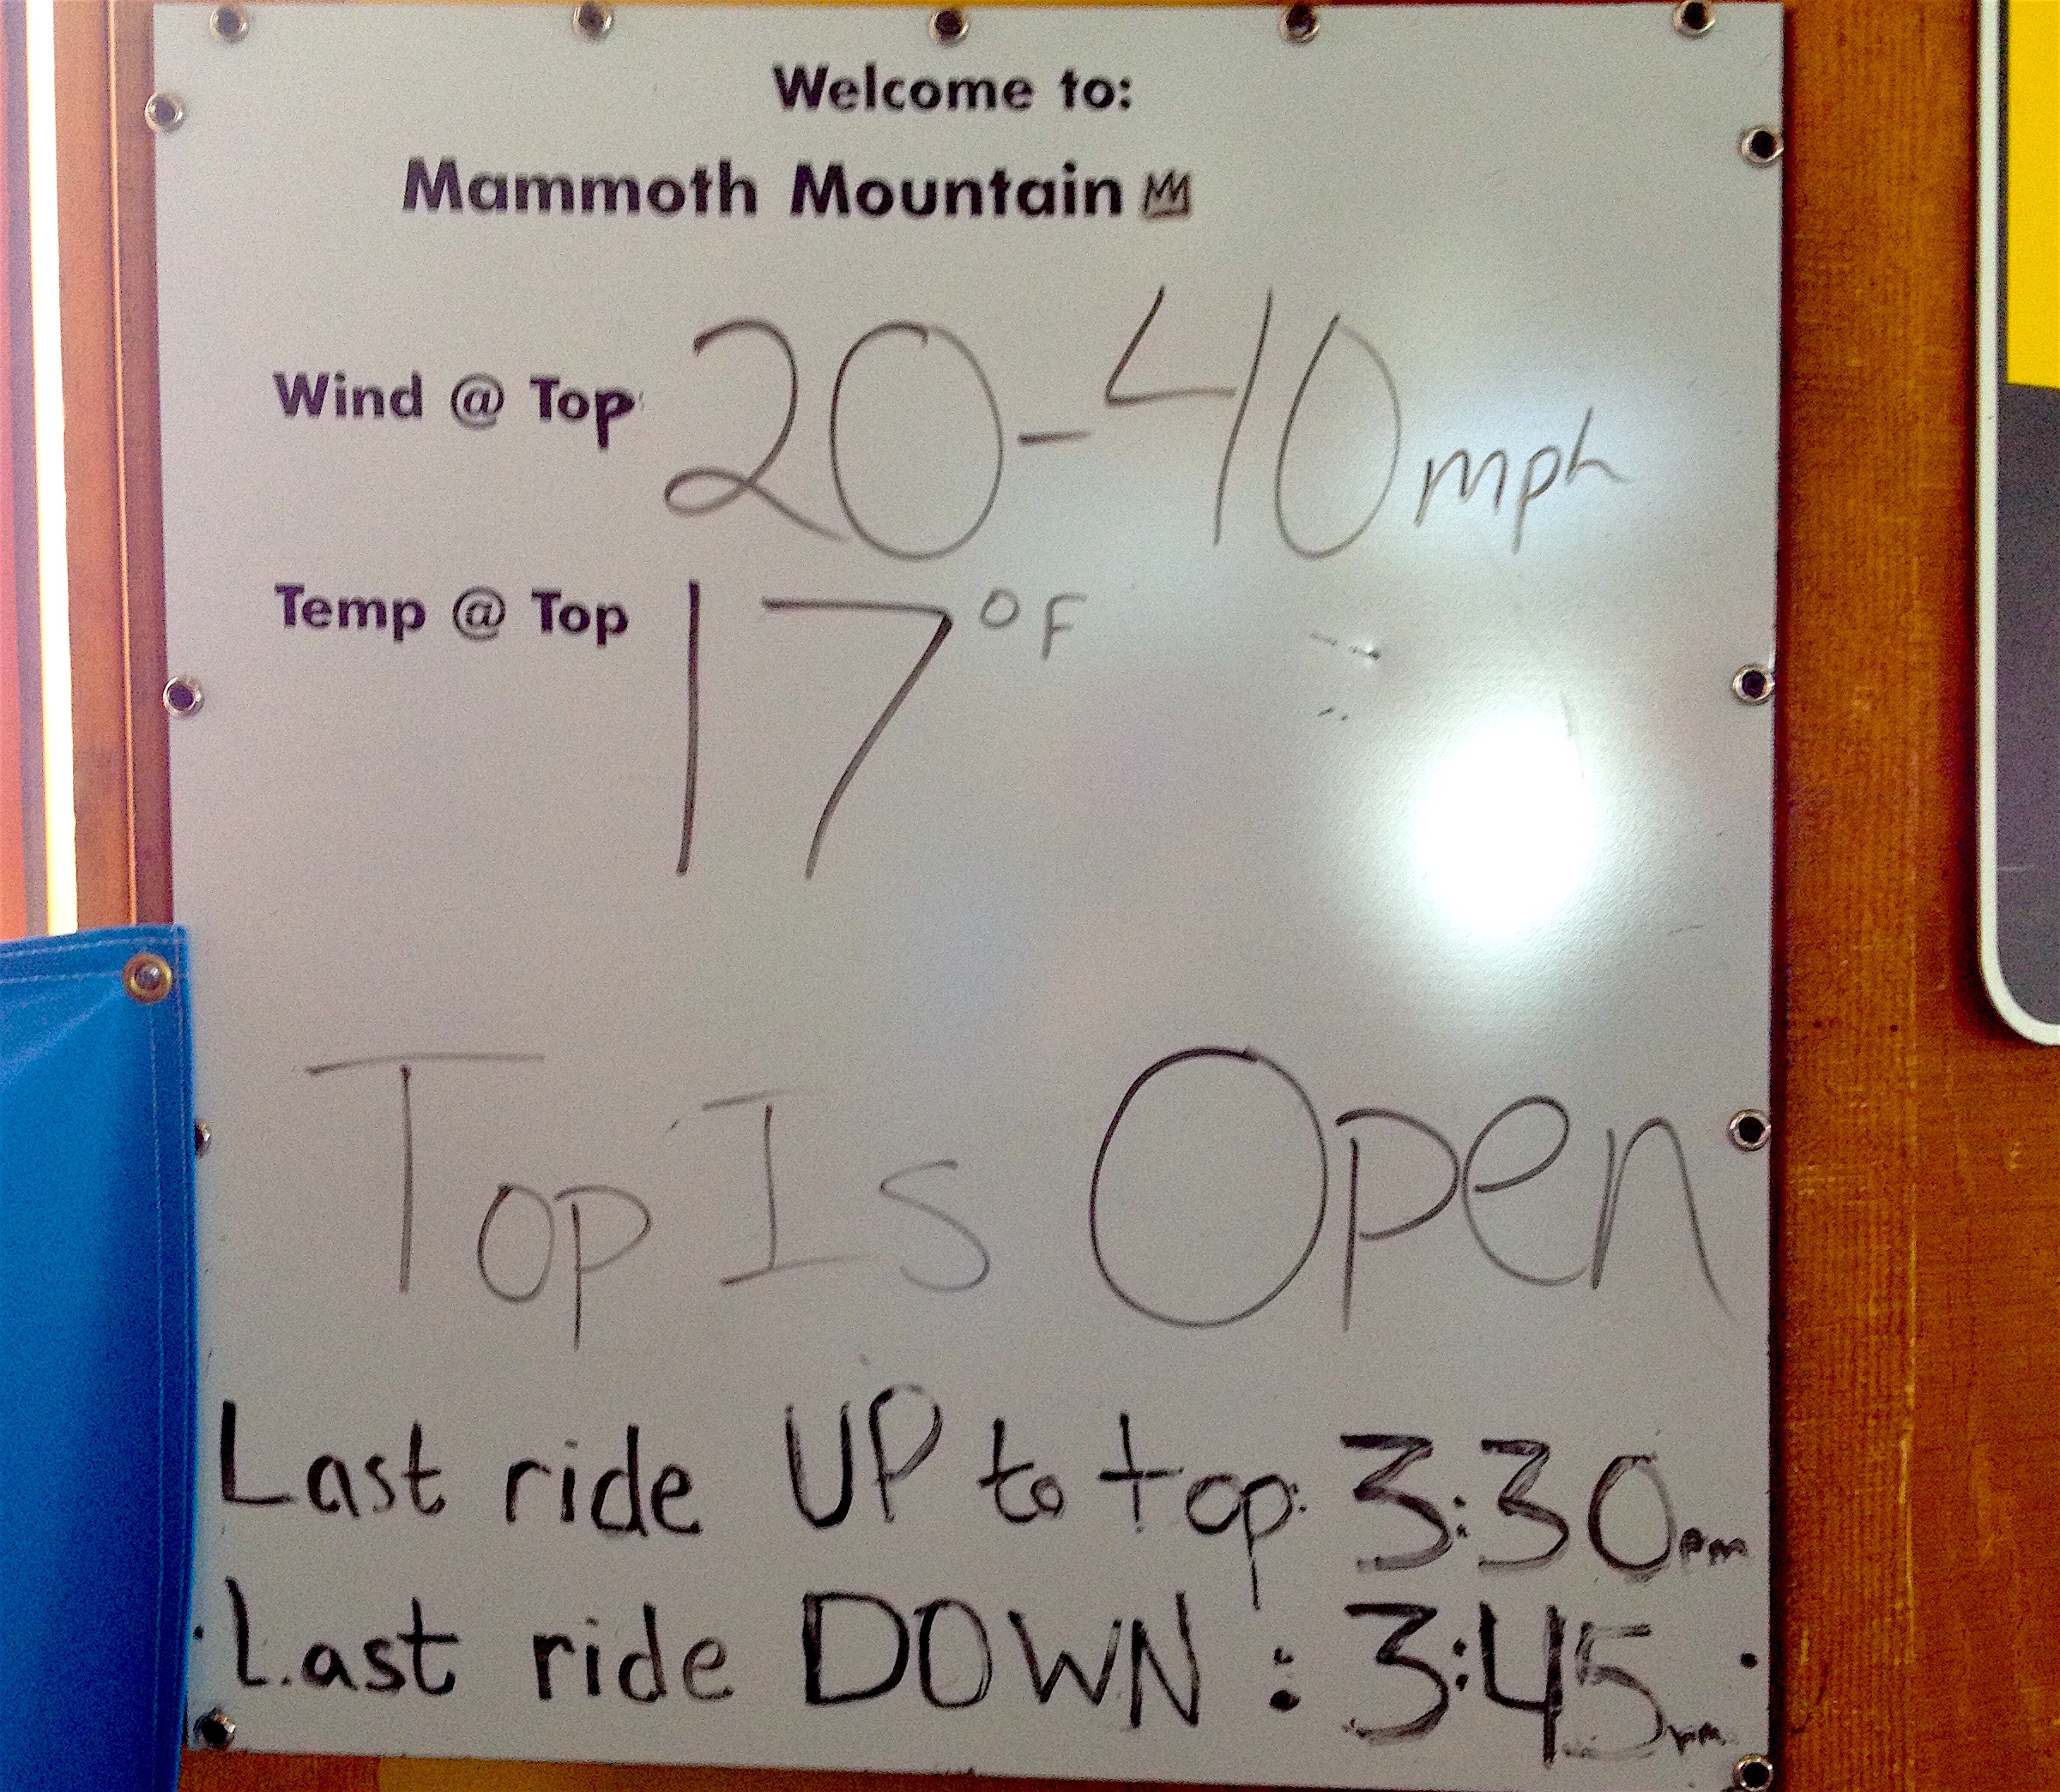 Welcome to:
Mammoth Mountain
Wind @ Top 20-40 mph
Temp @ Top 17 °F
Top Is Open
Last ride UP to top: 3:30pm
Last ride DOWN : 3:45pm